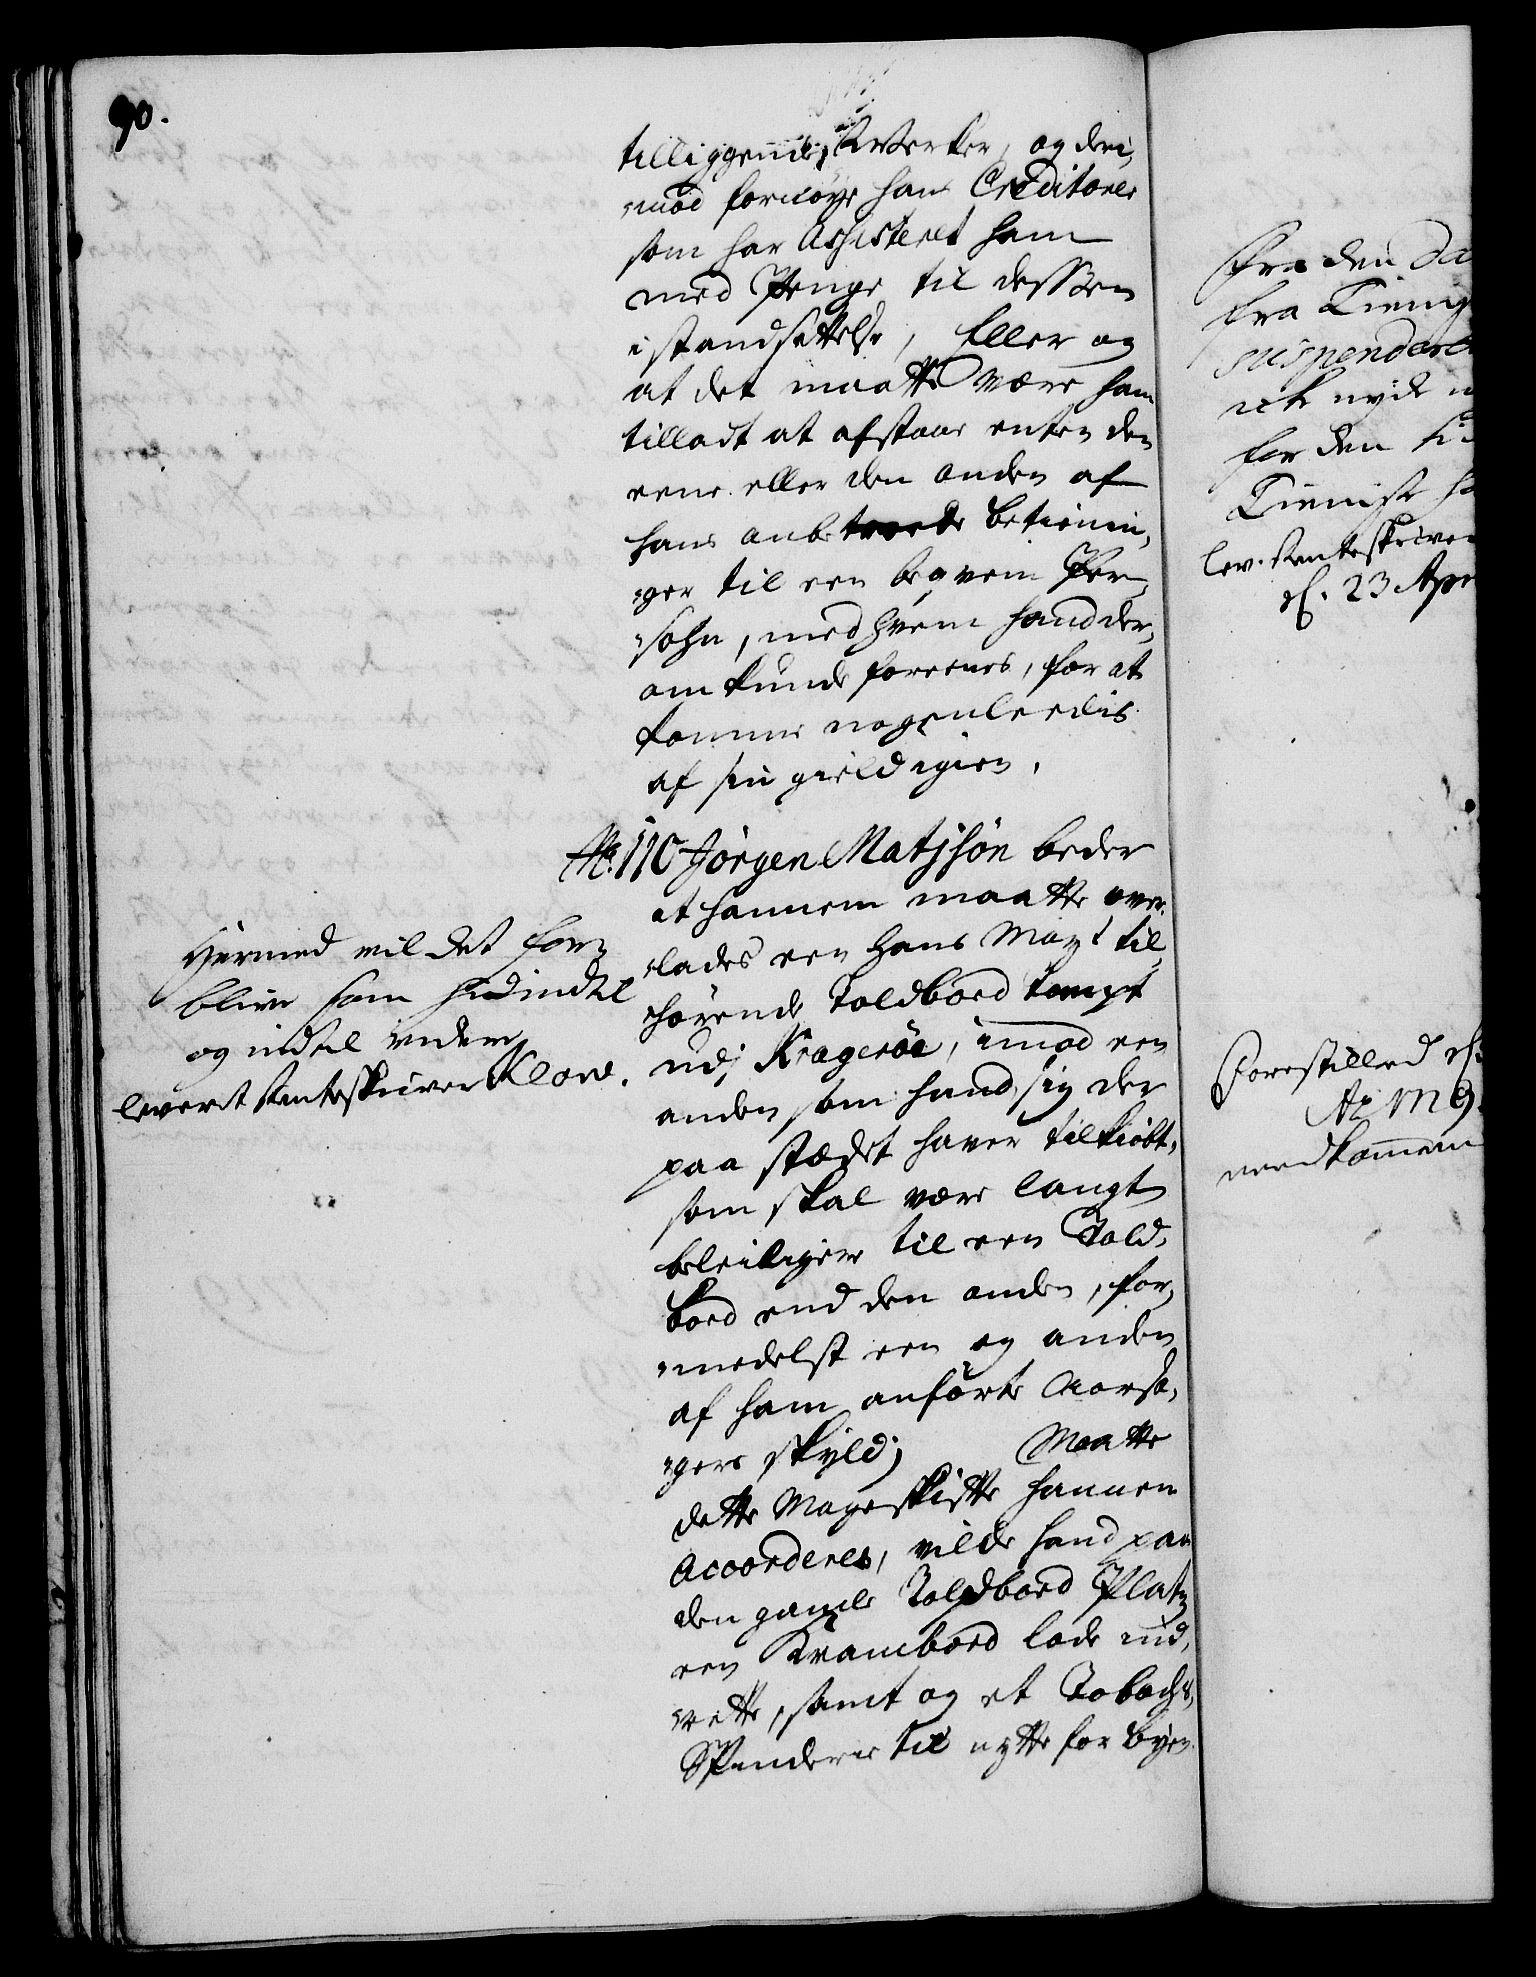 90.
tilliggende Qverker, og der i,
mod fornöye hans Creditorer
som har Assisteret ham
med Penge til dessen
istandsættelse, Eller og
at det maatte være ham
tilladt at afstaae enten den
eene eller den anden af
hans anbetroede betienin,
ger til een beqvem Per,
sohn, med hvem hand der,
om kunde foreenes, for at
komme nogenleedis
af sin gield igien.
No. 110 Jörgen Matjsön beder
at hannem maatte over,
lades een Hans Mayt til,
hörende Toldboed tompt
udj Krageröe, imod een
anden som hand sig der
paa stædet haver tilkiöbt,
som skal være langt
beleiligere til een Told,
boed end den anden, for,
medelst een og anden
af ham anförte Aarsa,
gers skyld; Maatte
dette Mageskifte hannem
Accorderes, vilde hand paa
den gamle Toldboed Platz
een Kramboed lade ind,
rette, samt og et Tobachs,
Spinderie til nytte for byen.
Hermed vil det for,
blive som hidindtil
og indtil videre
leveret Renteskriver Klow.
Fra den
fra Tienes
suspendere
icke nyde
for den
Tieniste
lev. Renteskriver
d. 23 Apr
Forestilled d.
Ap M 9.
needkommen